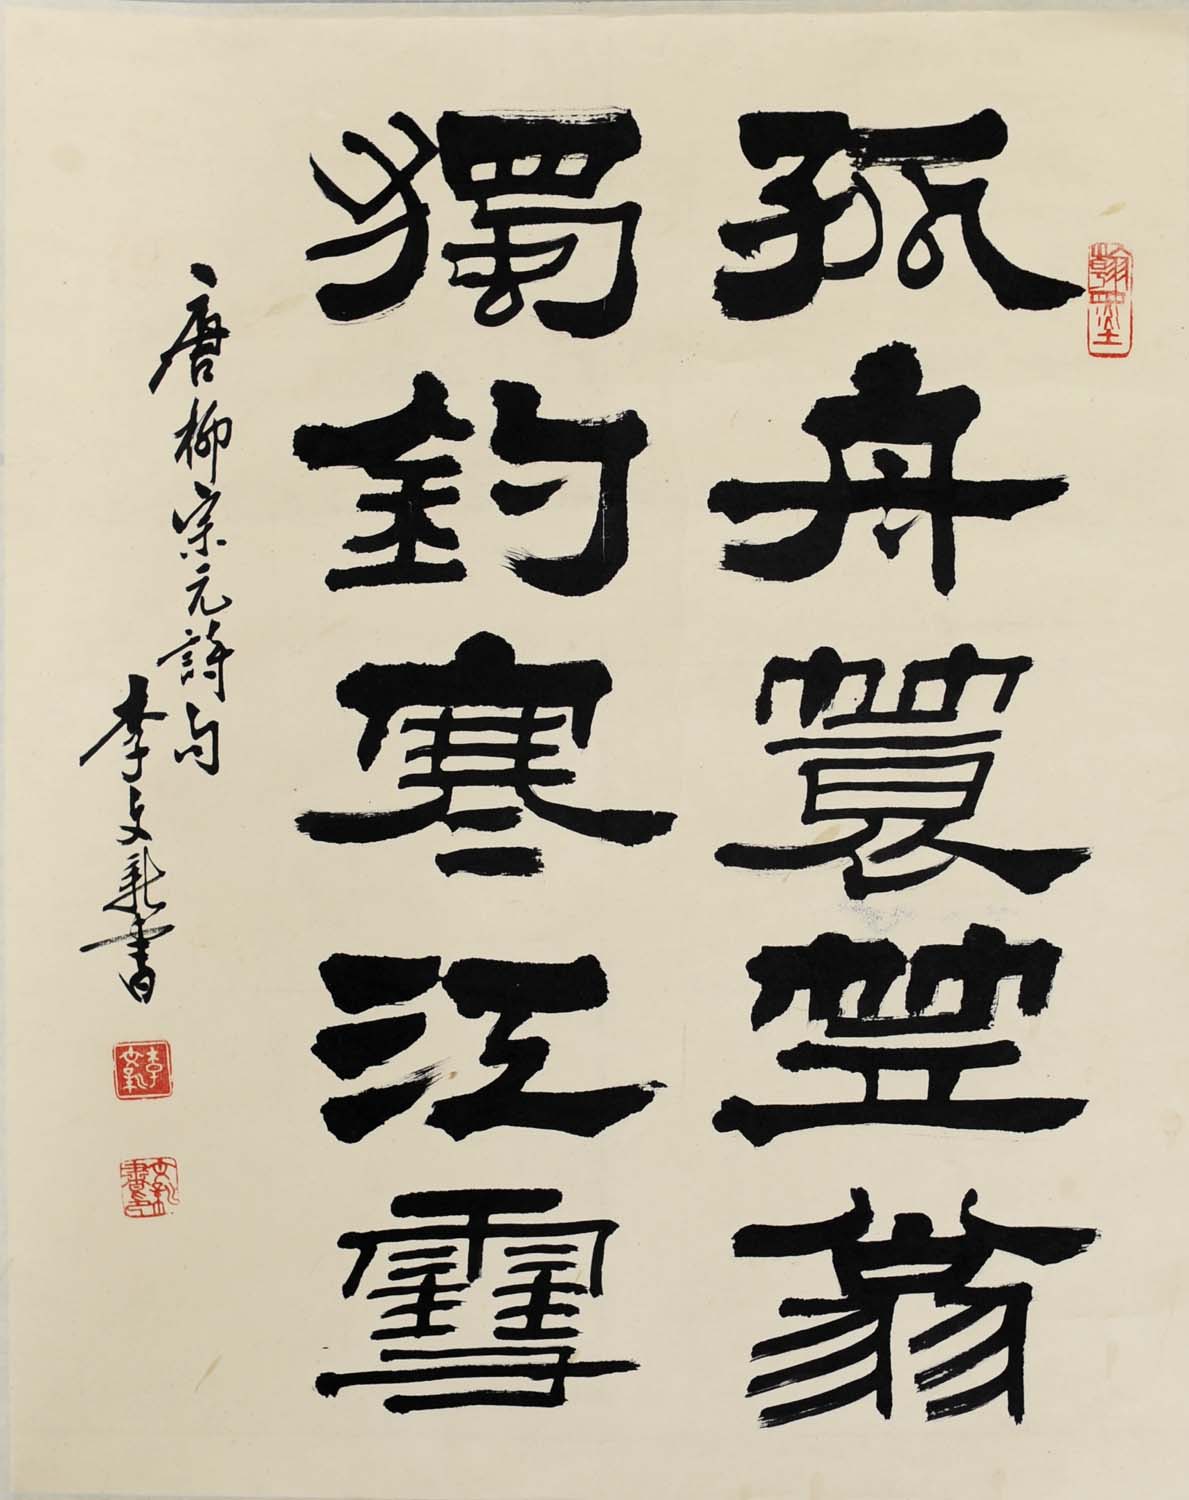 孤舟蓑笠翁
獨釣寒江雪
唐柳宗元詩句
李文新書
翰墨
李文新